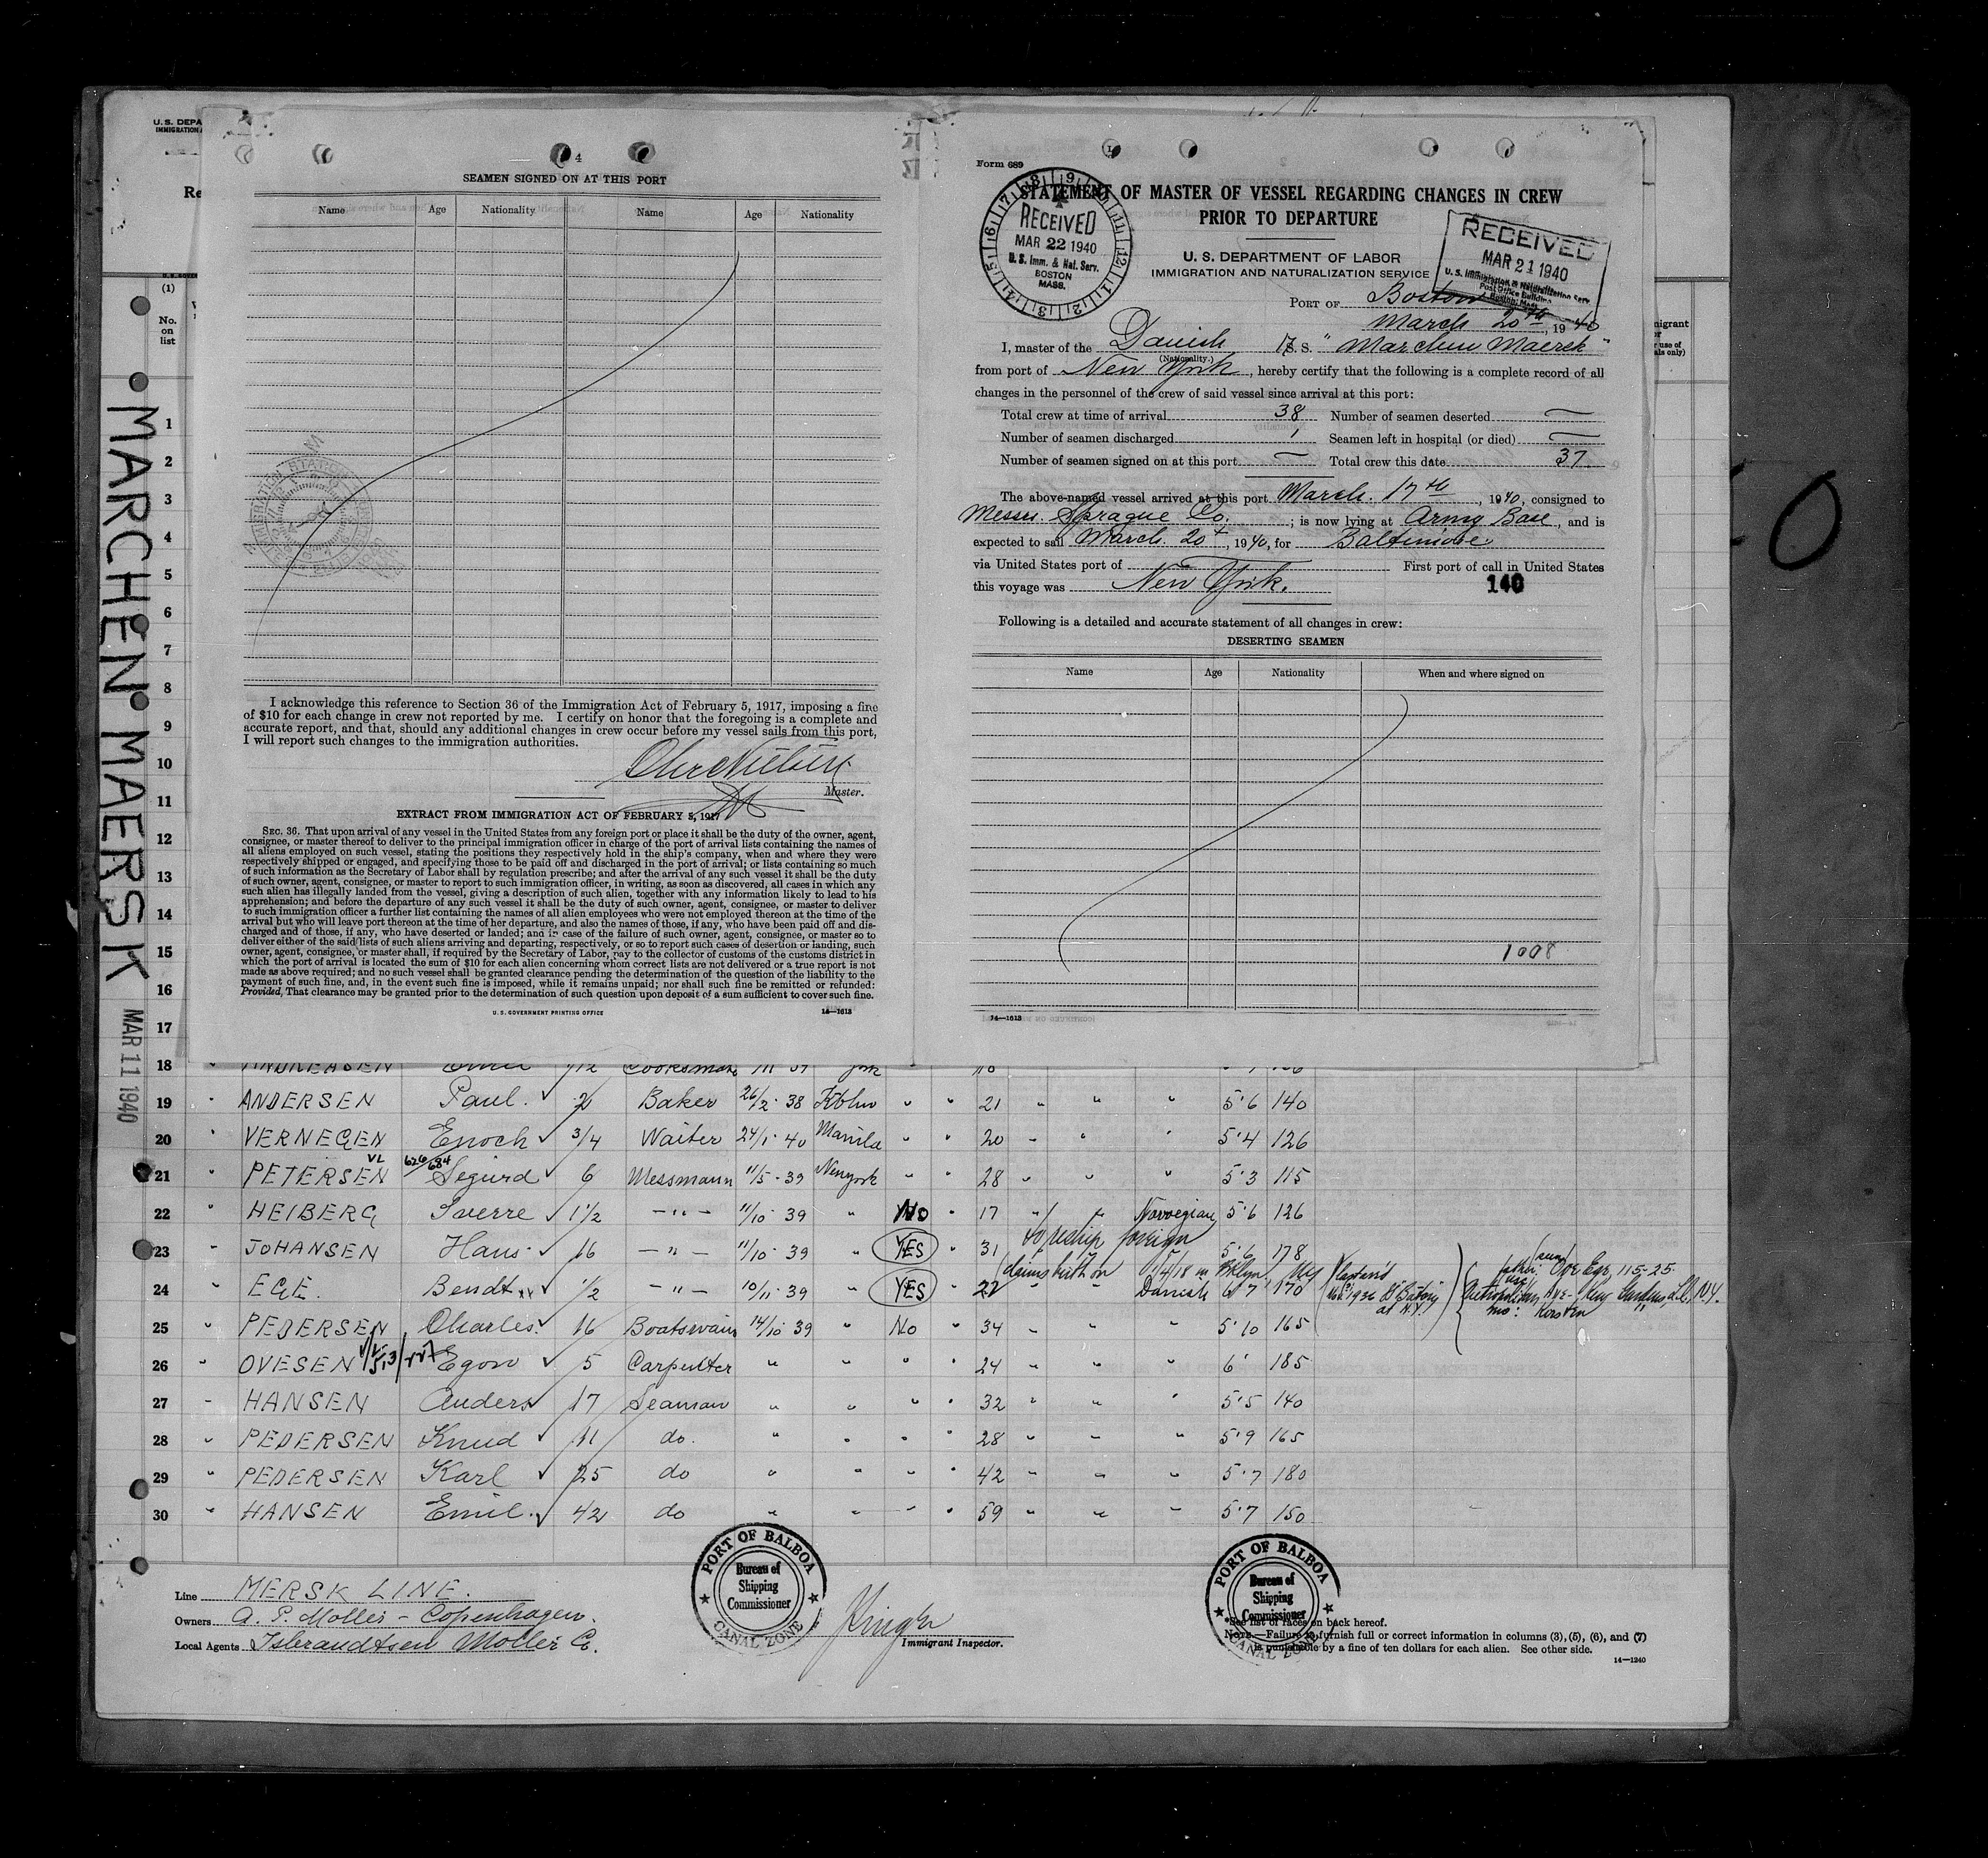 U. S. DEPA
IMMIGRATION A
Re
(1)
No.
on
list
MARCHEN MAERSK
MAR 11 1940
4
SEAMEN SIGNED ON AT THIS PORT
Name Age Nationality Name Age Nationality
I acknowledge this reference to Section 36 of the Immigration Act of February 5, 1917, imposing a fine
of $10 for each change in crew not reported by me. I certify on honor that the foregoing is a complete and
accurate report, and that, should any additional changes in crew occur before my vessel sails from this port,
I will report such changes to the immigration authorities.
Master.
EXTRACT FROM IMMIGRATION ACT OF FEBRUARY 5, 1917
SEC. 36. That upon arrival of any vessel in the United States from any foreign port or place it shall be the duty of the owner, agent,
consignee, or master thereof to deliver to the principal immigration officer in charge of the port of arrival lists containing the names of
all aliens employed on such vessel, stating the positions they respectively hold in the ship's company, when and where they were
respectively shipped or engaged, and specifying those to be paid off and discharged in the port of arrival; or lists containing so much
of such information as the Secretary of Labor shall by regulation prescribe; and after the arrival of any such vessel it shall be the duty
of such owner, agent, consignee, or master to report to such immigration officer, in writing, as soon as discovered, all cases in which any
such alien has illegally landed from the vessel, giving a description of such alien, together with any information likely to lead to his
apprehension; and before the departure of any such vessel it shall be the duty of such owner, agent, consignee, or master to deliver
to such immigration officer a further list containing the names of all alien employees who were not employed thereon at the time of the
arrival but who will leave port thereon at the time of her departure, and also the names of those, if any, who have been paid off and dis-
charged and of those, if any, who have deserted or landed; and in case of the failure of such owner, agent, consignee, or master so to
deliver either of the said lists of such aliens arriving and departing, respectively, or so to report such cases of desertion or landing, such
owner, agent, consignee, or master shall, if required by the Secretary of Labor, pay to the collector of customs of the customs district in
which the port of arrival is located the sum of $10 for each alien concerning whom correct lists are not delivered or a true report is not
made as above required; and no such vessel shall be granted clearance pending the determination of the question of the liability to the
payment of such fine, and, in the event such fine is imposed, while it remains unpaid; nor shall such fine be remitted or refunded:
Provided, That clearance may be granted prior to the determination of such question upon deposit of a sum sufficient to cover such fine.
U. S. GOVERNMENT PRINTING OFFICE 14—1613
Form 689
STATEMENT OF MASTER OF VESSEL REGARDING CHANGES IN CREW
PRIOR TO DEPARTURE
RECEIVED
MAR 22 1940
U. S. Imm. & Nat. Serv.
BOSTON
MASS.
RECEIVED
MAR 21 1940
U. S. Immigration & Naturalization Serv.
Post Office Building
Boston, Mass.
U. S. DEPARTMENT OF LABOR
IMMIGRATION AND NATURALIZATION SERVICE
PORT OF Boston
March 20th, 1940
I, master of the Danish S. S. "Marchen Maersk"
(Nationality.)
from port of New York, hereby certify that the following is a complete record of all
changes in the personnel of the crew of said vessel since arrival at this port:
Total crew at time of arrival 38 Number of seamen deserted —
Number of seamen discharged 1 Seamen left in hospital (or died) —
Number of seamen signed on at this port — Total crew this date 37
The above-named vessel arrived at this port March 17th, 1940, consigned to
Messrs. Sprague Co.; is now lying at Army Base, and is
expected to sail March 20t, 1940, for Baltimore
via United States port of — First port of call in United States
this voyage was New York.
140
Following is a detailed and accurate statement of all changes in crew:
DESERTING SEAMEN
Name Age Nationality When and where signed on
1008
14—1613
migrant
or
r use of
als only)
0
1
2
3
4
5
6
7
8
9
10
11
12
13
14
15
16
17
18 " ANDREASEN
19 " ANDERSEN Paul. 2 Baker 26/2·38 Kbhn " " 21 " " " 5'6 140
20 " VERNEGEN Enoch 3/4 Waiter 24/1·40 Manila " " 20 " " " 5'4 126
VL 626 684
21 " PETERSEN Segurd 6 Messmann 11/5·39 Newyork " " 28 " " " 5'3 115
22 " HEIBERG Sverre 1 1/2 — " — 11/10·39 " No " 17 " " Norvegian 5'6 126
to reship foreign
23 " JOHANSEN Hans 16 — " — 11/10·39 " YES " 31 5'6 178
claims birth on
24 " EGE. Bendt 1/2 — " — 10/11·39 " YES " 22 " " Danish 6'7 170
father: Ove Ege, 115-25
Metropolitan Ave - Kew Gardens, L.I., N.Y.
mo: Kirsten
25 " PEDERSEN Charles. 16 Boatswain 14/10 39 " No " 34 " " " 5'10 165
26 " OVESEN Egon 5 Carpenter " " " " 24 " " " 6' 185
27 " HANSEN Anders 17 Seaman " " " " 32 " " " 5'5 140
28 " PEDERSEN Knud 11 do. " " " " 28 " " " 5'9 165
29 " PEDERSEN Karl 25 do " " " " 42 " " " 5'7 180
30 " HANSEN Emil. 42 do " " " " 59 " " " 5'7 150
Line MERSK LINE.
Owners A. P. Moller - Copenhagen.
Local Agents Isbrandtsen Moller Co.
PORT OF BALBOA
Bureau of
Shipping
Commissioner
CANAL ZONE
Immigrant Inspector.
PORT OF BALBOA
Bureau of
Shipping
Commissioner
CANAL ZONE
*See list of races on back hereof.
NOTE.—Failure to furnish full or correct information in columns (3), (5), (6), and (7)
is punishable by a fine of ten dollars for each alien. See other side.
14—1240